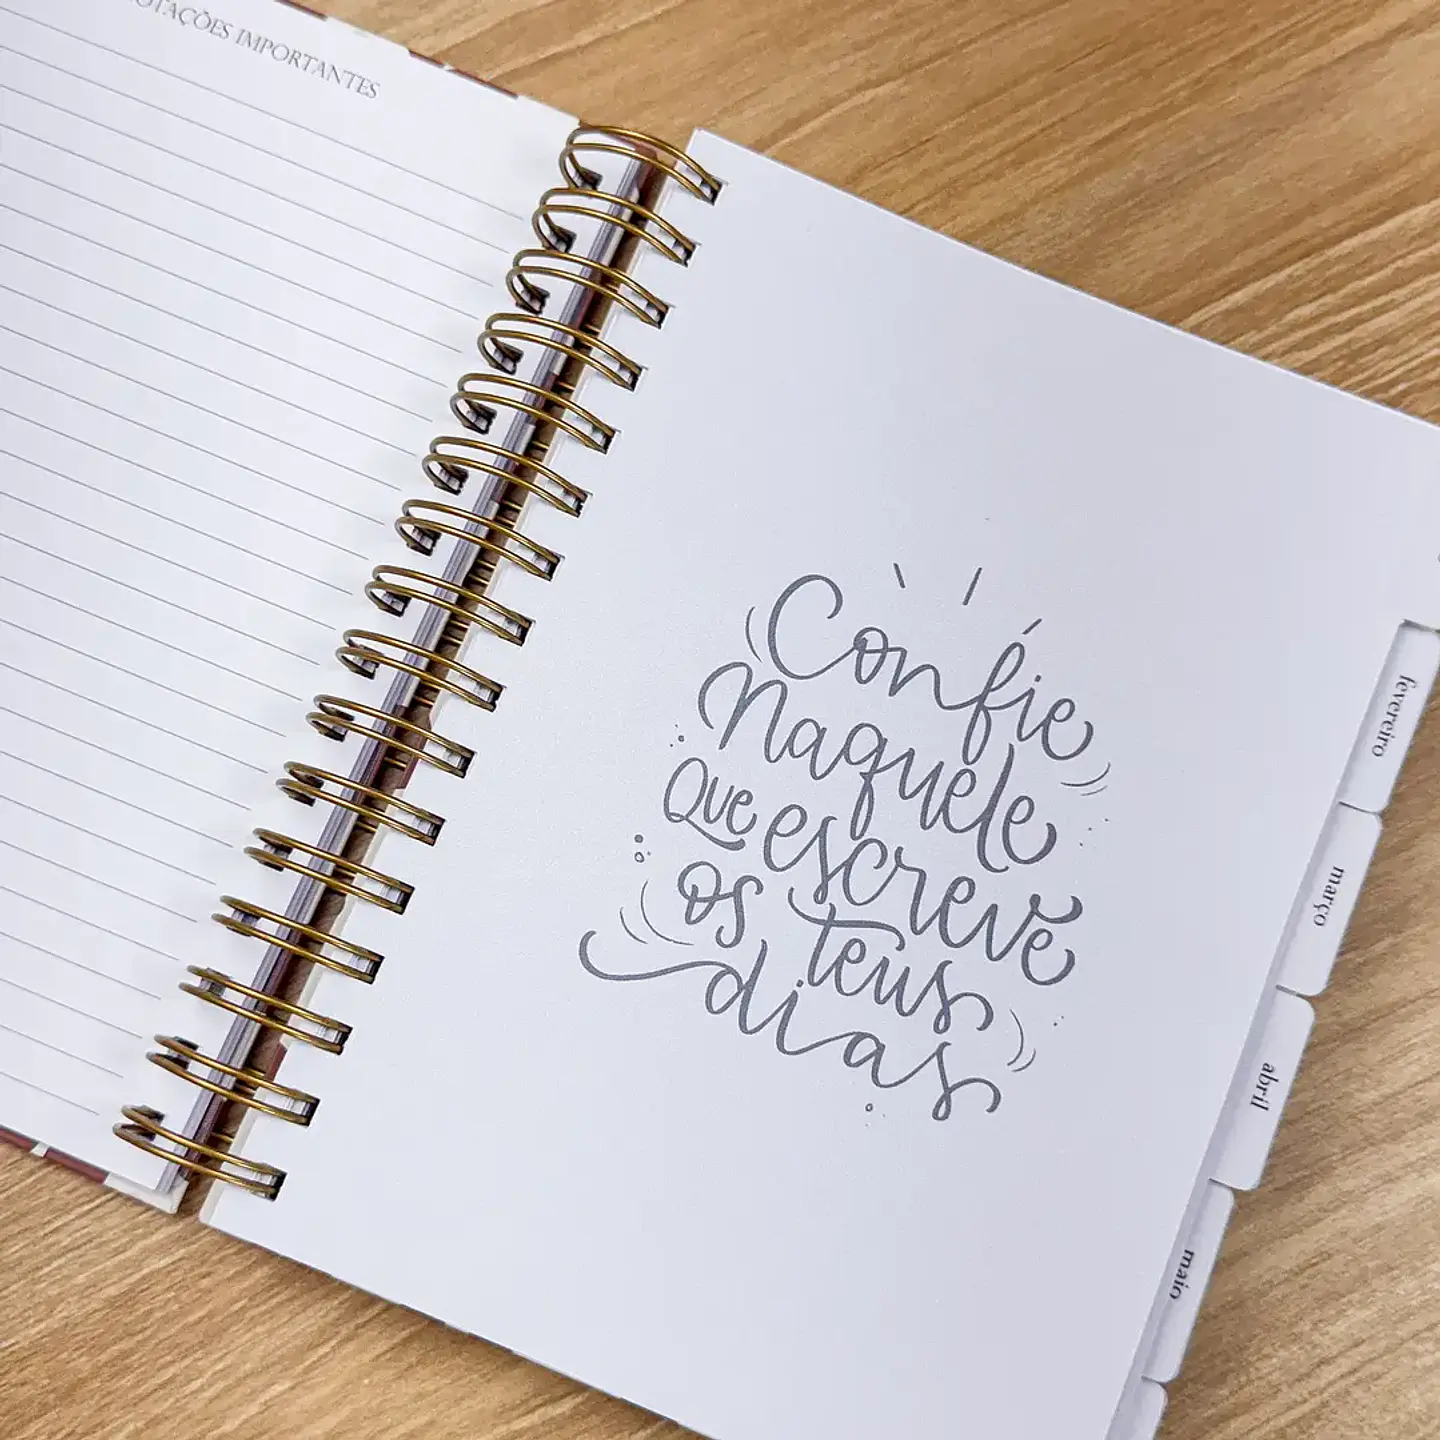 IMPORTANTES
Confie
Naquele
Que escreve
os teus
dias
fevereiro
março
abril
maio